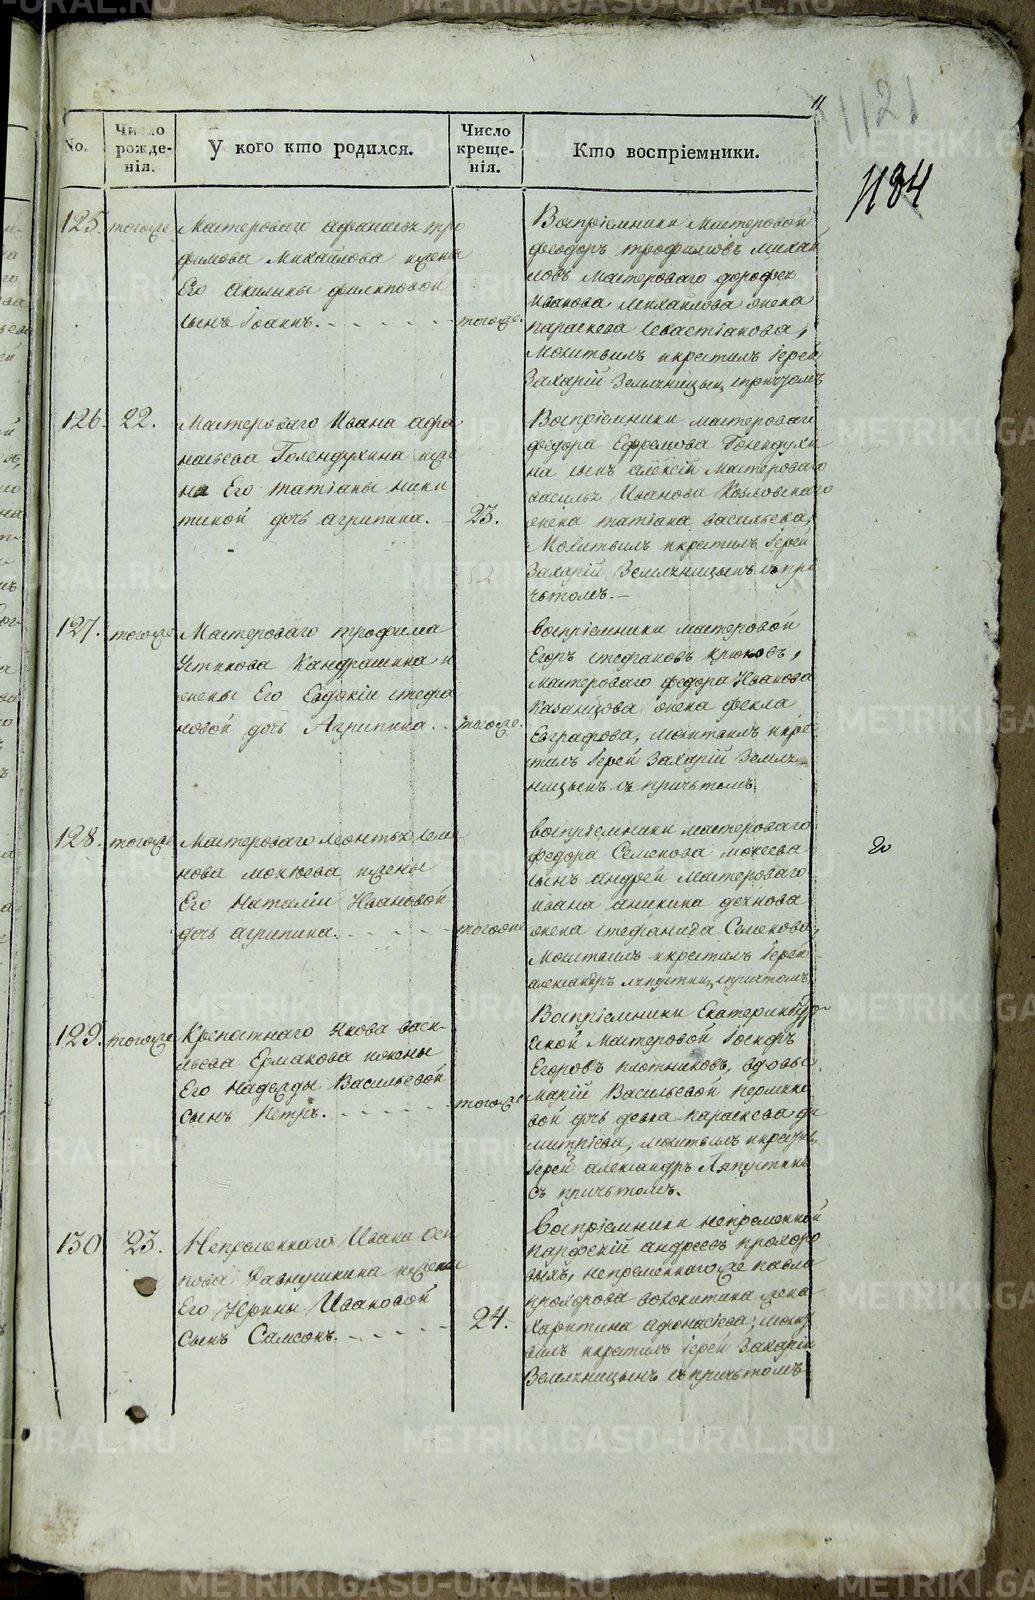 1121
1184
No.
Число рожде-нія.
У кого кто родился.
Число креще-нія.
Кто воспріемники.
125. тогоже
Мастероваго афанасья тро
фимова Михайлова ижены
Его Акилины филиповой
сынъ Іоаннъ.
тогоже.
Воспріемники мастеровой
феодоръ трофимовъ михай
ловъ мастероваго дорофея
иванова михайлова жена
параскева севастіанова,
Молитвилъ икрестилъ іерей
Захарій Земляницын спричтомъ
126. 22.
Мастероваго Ивана афа
насьева Голендухина иже
на Его татіаны ники
тиной дочь агрипина.
23.
Воспріемники мастероваго
федора Ефремова Голендухи
на сынъ алексій мастероваго
василья Иванова Козловскаго
жена татіана васильева,
Молитвилъ икрестилъ іерей
Захарій Земляницынъ спри
чтомъ.
127. тогоже
Мастероваго трофима
Устинова Кандрашина и
жены Его Евдокіи стефа
новой дочь Агрипина.
тогоже.
воспріемники мастеровой
Егоръ стефановъ крюковъ,
мастероваго федора Иванова
Казанцова жена фекла
Евграфова, молитвилъ икре
стилъ іерей Захарій Земля
ницынъ съ причтомъ.
128. тогоже
Мастероваго леонтья семе
нова мокеева ижены
Его Наталіи Ивановой
дочь агрипина.
тогоже
воспріемники мастероваго
федора Семенова мокеева
сынъ андрей мастероваго
ивана аникина
жена стефанида Семенова,
молитвилъ икрестилъ іерей
александръ ляпустин спричтомъ
129. тогоже
Крепостнаго якова васи-
льева Ермакова ижены
Его Надежды Васильевой
сынъ Петръ.
тогоже
Воспріемники Екатеринбург
ской мастеровой Іосифъ
Егоровъ плотниковъ, вдовы
маріи Васильевой пермяко
вой дочь девка параскева ди
митріева, молитвилъ икрестил
іерей александръ Ляпустинъ
съ причтомъ.
130 23.
Непременнаго Ивана Оси
пова ижены
Его Ирины Ивановой
сынъ Самсонъ.
24.
воспріемники непременной
парфеній андреевъ прохоро
выхъ, непременнагоже павла
прохорова волокитина жена
Харитина афонасіева, молит
вилъ икрестилъ іерей Захарій
Земляницынъ съ причтомъ
METRIKI.GASO-URAL.RU